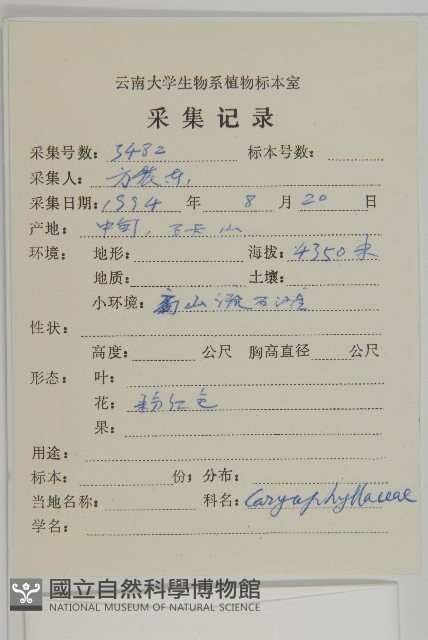 云南大学生物系植物标本室
采集记录
采集号数: 3482 标本号数:
采集人: 方震东,
采集日期: 1994 年 8 月 20 日
产地: 中甸, 下云山
环境: 地形: 海拔: 4350米
地质: 土壤:
小环境: 高山流石滩
性状:
高度: 公尺 胸高直径 公尺
形态: 叶:
花: 粉红色
果:
用途:
标本: 份; 分布:
当地名称: 科名: Caryophyllaceae
学名:
國立自然科學博物館
NATIONAL MUSEUM OF NATURAL SCIENCE